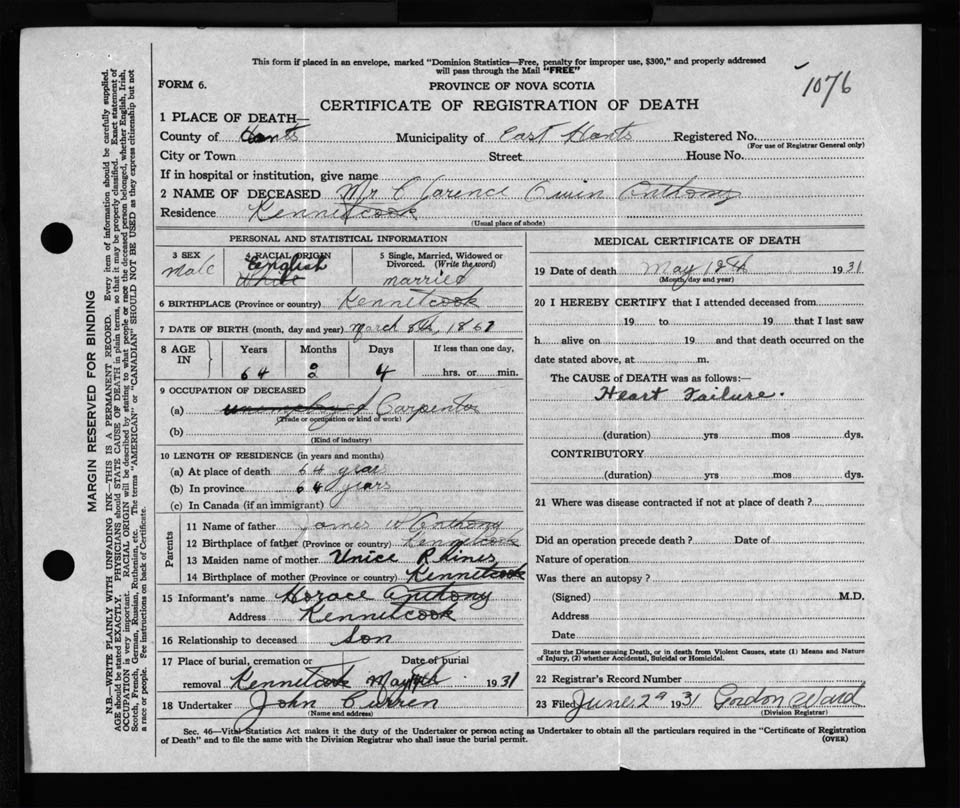 This form if placed in an envelope, marked "Dominion Statistics—Free, penalty for improper use, $300," and properly addressed
will pass through the Mail "FREE"
FORM 6.
PROVINCE OF NOVA SCOTIA
1076
CERTIFICATE OF REGISTRATION OF DEATH
1 PLACE OF DEATH—
County of Hants Municipality of East Hants Registered No.
(For use of Registrar General only)
City or Town Street House No.
If in hospital or institution, give name
2 NAME OF DECEASED Mr Clarence Anthony
Residence Kennetcook
(Usual place of abode)
PERSONAL AND STATISTICAL INFORMATION
3 SEX male
4 RACIAL ORIGIN English White
5 Single, Married, Widowed or Divorced. (Write the word) married
6 BIRTHPLACE (Province or country) Kennetcook
7 DATE OF BIRTH (month, day and year) March 8th, 1867
8 AGE IN Years Months Days If less than one day,
64 2 4 hrs. or min.
9 OCCUPATION OF DECEASED
(a) unemployed Carpenter
(Trade or occupation or kind of work)
(b)
(Kind of industry)
10 LENGTH OF RESIDENCE (in years and months)
(a) At place of death 64 years
(b) In province 64 years
(c) In Canada (if an immigrant)
Parents
11 Name of father James W Anthony
12 Birthplace of father (Province or country) Kennetcook
13 Maiden name of mother Unice R Hines
14 Birthplace of mother (Province or country) Kennetcook
15 Informant's name Horace Anthony
Address Kennetcook
16 Relationship to deceased Son
17 Place of burial, cremation or Date of burial
removal Kennetcook May 14th 1931
18 Undertaker John Curren
(Name and address)
MEDICAL CERTIFICATE OF DEATH
19 Date of death May 12th 1931
(Month, day and year)
20 I HEREBY CERTIFY that I attended deceased from
19 to 19 that I last saw
h alive on 19 and that death occurred on the
date stated above, at m.
The CAUSE OF DEATH was as follows:—
Heart Failure.
(duration) yrs mos dys.
CONTRIBUTORY
(duration) yrs mos dys.
21 Where was disease contracted if not at place of death?
Did an operation precede death? Date of
Nature of operation
Was there an autopsy?
(Signed) M.D.
Address
Date
State the Disease causing Death, or in death from Violent Causes, state (1) Means and Nature
of Injury, (2) whether Accidental, Suicidal or Homicidal.
22 Registrar's Record Number
23 Filed June 2 1931 Gordon Ward
(Division Registrar)
Sec. 46—Vital Statistics Act makes it the duty of the Undertaker or person acting as Undertaker to obtain all the particulars required in the "Certificate of Registration
of Death" and to file the same with the Division Registrar who shall issue the burial permit.
(OVER)
MARGIN RESERVED FOR BINDING
N.B.—WRITE PLAINLY WITH UNFADING INK—THIS IS A PERMANENT RECORD. Every item of information should be carefully supplied.
AGE should be stated EXACTLY. PHYSICIANS should STATE CAUSE OF DEATH in plain terms, so that it may be properly classified. Exact statement of
OCCUPATION is very important. RACIAL ORIGIN will be described by stating to what people or race the deceased person belonged, whether English, Irish,
Scotch, French, German, Russian, Ruthenian, etc. The terms "AMERICAN" or "CANADIAN" SHOULD NOT BE USED as they express citizenship but not
a race or people. Fee instructions on back of Certificate.